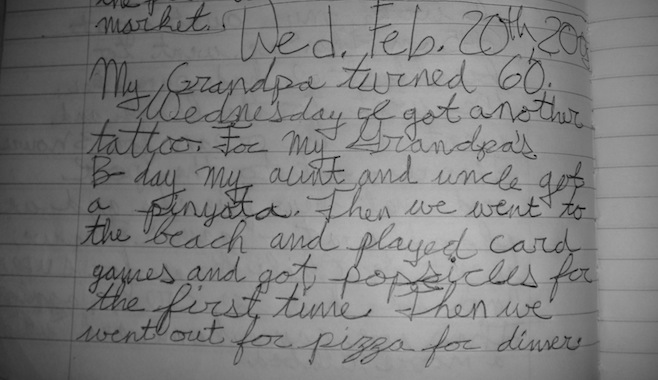 market.
Wed. Feb. 20th, 200
My Grandpa turned 60.
Wednesday I got another
tattoo. For my Grandpa's
B-day my aunt and uncle got
a pinyata. Then we went to
the beach and played card
games and got popsicles for
the first time. Then we
went out for pizza for dinner.